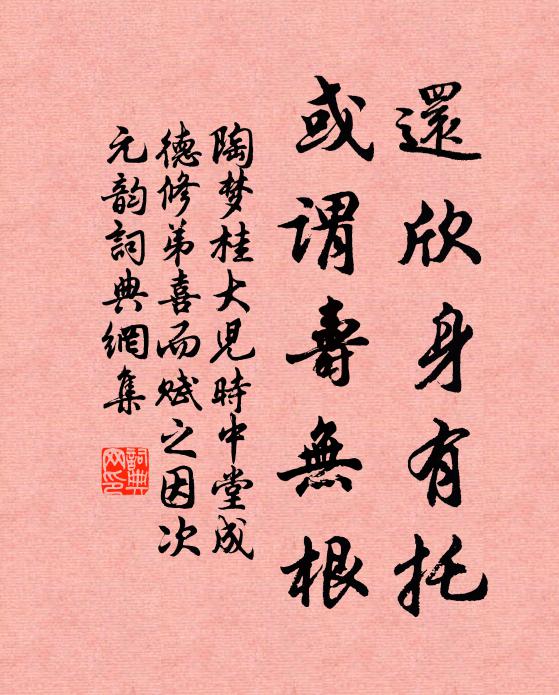 還欣身有托
或謂壽無根
陶梦桂大児時中堂成
德修弟喜而赋之因次
元韵詞典網集
詞典网印